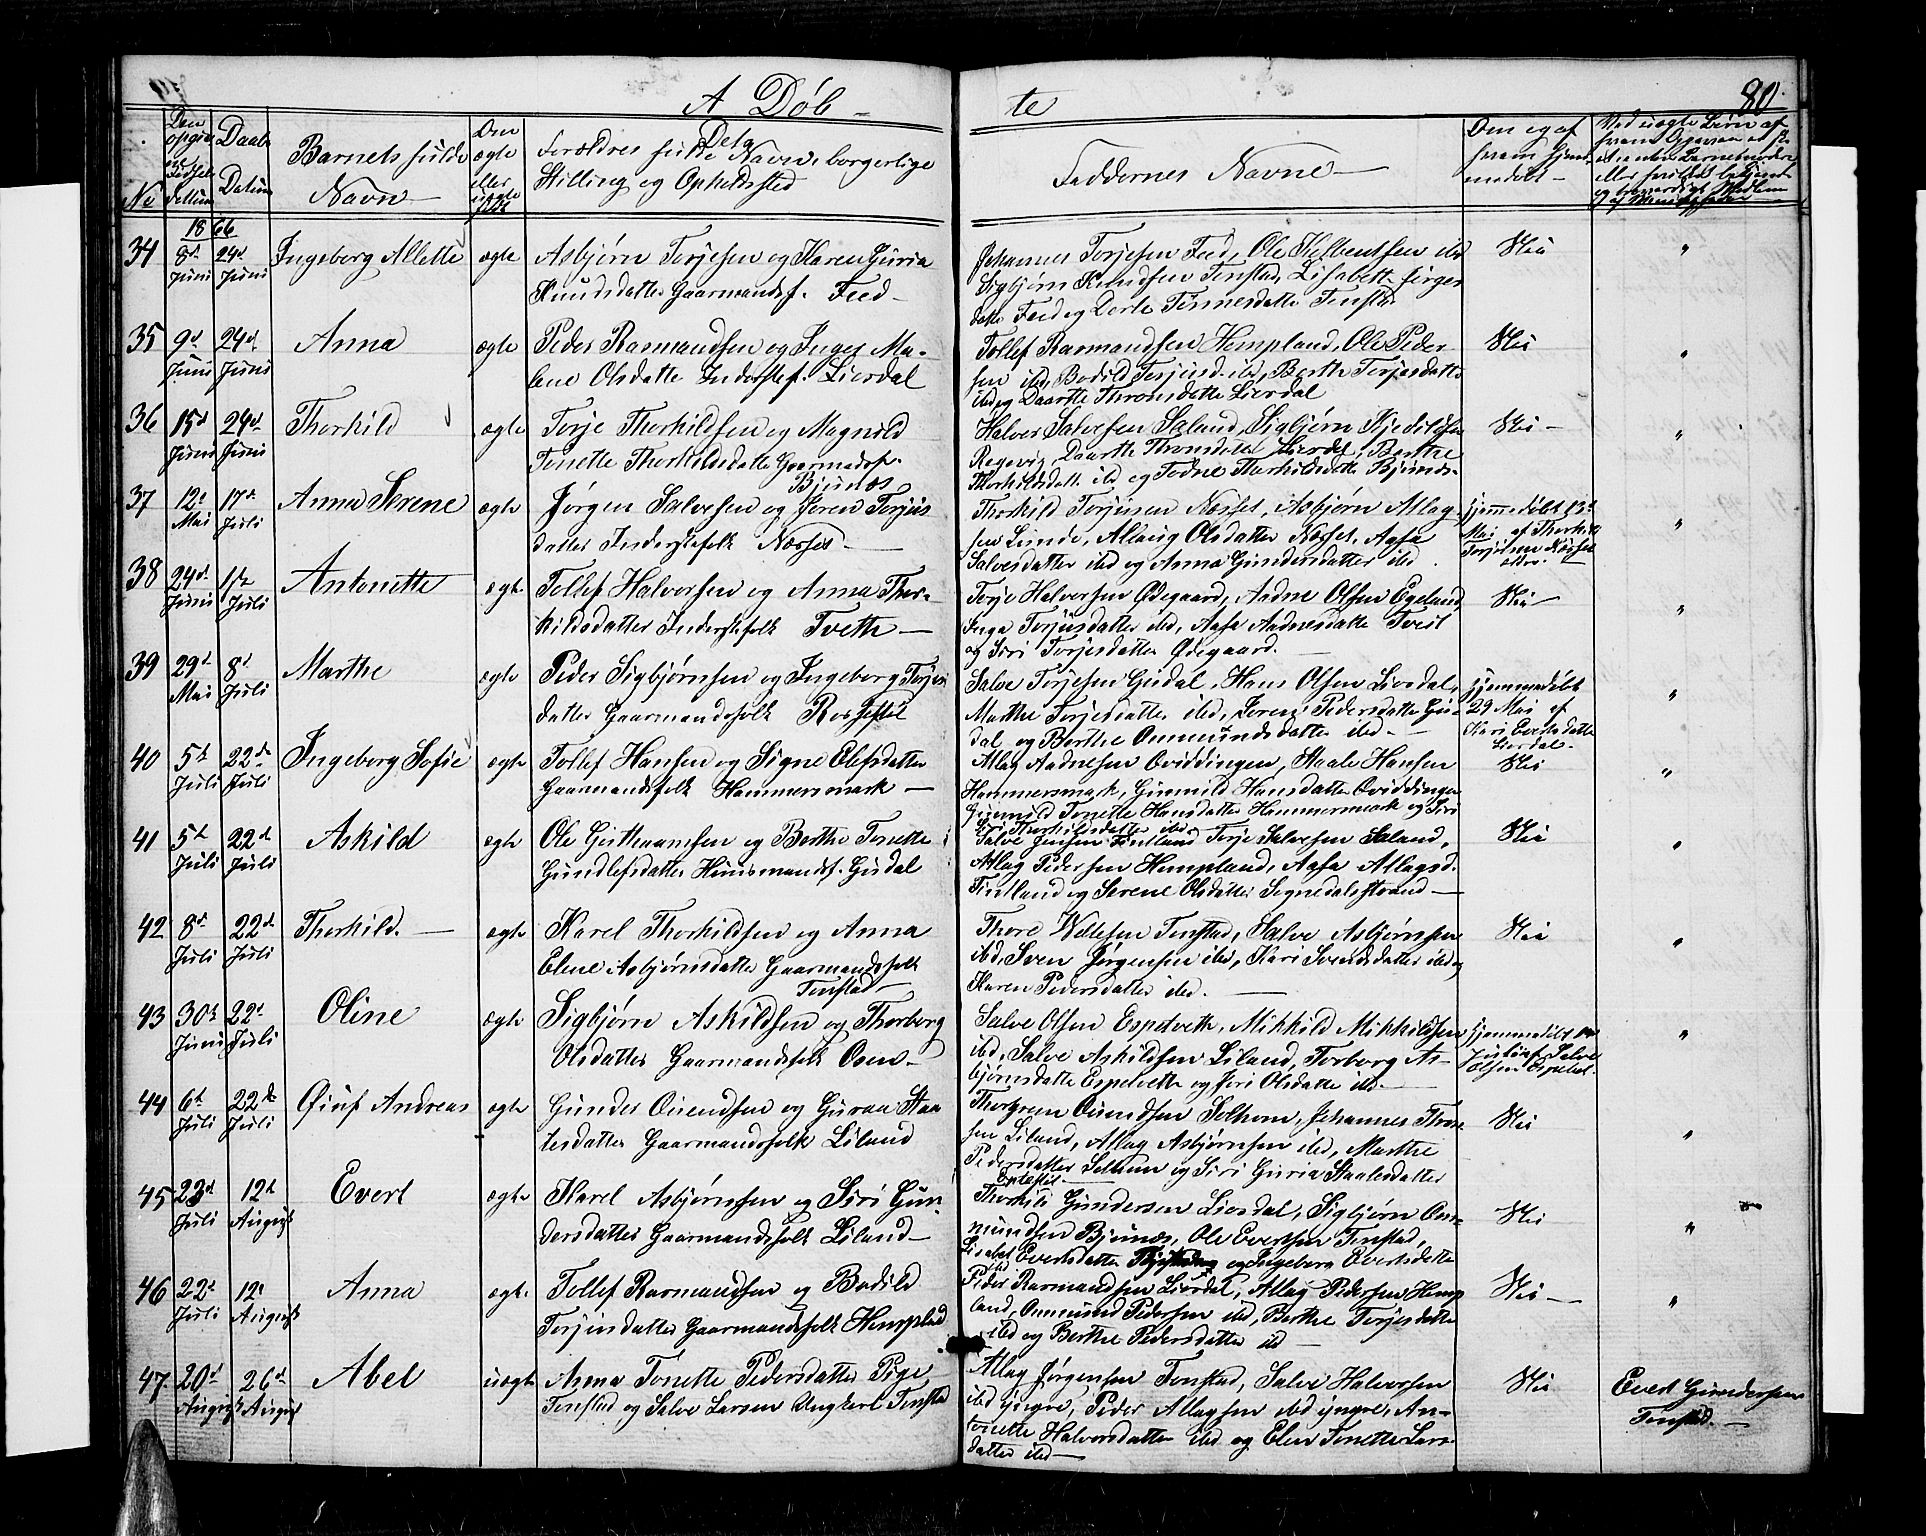 A Döb-
te
80.
No
Den opgivne Fødsels Datum
Daabs Datum
Barnets fulde Navn
Den ægte eller uægte født
Forældres fulde Navn, borgerlige
Stilling og Opholdsted
Faddernes Navne
1866
34 8d Juni 24d Juni Ingeborg Allette ægte
Asbjørn Torjesen og Karen Guria
Knudsdatter Gaarmandsf. Feed
Johannes Torjesen Feed, Ole
Sigbjørn Knudsen Tonstad, Lisabeth
datter Feed og Dorte Tønnesdatter Tonstd.
Nei "
35 9d Juni 24d Juni Anna ægte
Peder Rasmundsen og Inger Ma-
lene Olsdatter Inderstef. Liordal
Tollef Rasmundsen Hompland, Ole Peder-
sen ibd, Bodild Torjusd. ibd, Berthe Torjesdatter
ibd og Daarthe Thronsdatter Liordal
Nei "
36 15d Juni 24d Juni Thorkild ægte
Torje Thorkildsen og Magnild
Tonette Thorkildsdatter Gaarmadsf.
Bjunæs
Halvor Salvesen Saland, Sigbjørn
Daarthe Thronsdatter Liordal, Berthe
Thorkildsdatt. ibd og Todne Thorkildsdatte Bjunæs.
Nei - "
37 12t Mai 17de Juli Anna Serene ægte
Jørgen Salvesen og Joren Torjus
datter Inderstefolk Næsset
Thorkild Torjusen Næsset, Asbjørn Atlag-
sen Lunde, Atlaug Olsdatter Næsset, Aasa
Salvesdatter ibd og Anna Gundersdatter ibd.
hjemmedøbt 13d
Mai af Thorkild
Torjusen Næsset
"
38 24d Juni 1ste Juli Antonette ægte
Tollef Halvorsen og Anna Thor-
kildsdatter Inderstefolk Tveth
Torje Halvorsen Ødegaard, Aadne Olsen Egeland,
Inga Torjusdatter ibd, Aasa Aadnesdatte Tveit
og Siri Torjesdatter Ødegaard.
Nei "
39 29d Mai 8d Juli Marthe ægte
Peder Sigbjørnsen og Ingeborg Torjes
datter Gaarmandsfolk
Salve Torjesen Gudal, Hans Olsen Liordal,
Marthe Torjesdatter ibd, Soren Pedersdatter Gu-
dal og Berthe Onmundsdatter ibd.
hjemmedøbt
29 Mai af
Kari Evertsdatter
Liordal.
"
40 5d Juli 22de Juli Ingeborg Sofie ægte
Tollef Hansen og Signe Olefsdatter
Gaarmandsfolk Hammersmark
Atlag Aadnesen Oviddingen, Staale Hansen
Hammersmark, Gunnild Hansdatter Oviddingen
Gunnild Tonette Hansdatter Hammersmark og Siri
Thorkildsdatter ibd.
Nei "
41 5d Juli 22d Juli Askild ægte
Ole Guttormsen og Berthe Tonette
Gundlefsdatter Huusmandsf. Gudal
Salve Jensen Fintland Torje Salvesen Saland,
Atlag Pedersen Hompland, Aasa Atlagsd.
Fintland og Serene Olsdatter Segnedalsstrand
Nei "
42 8d Juli 22d Juli Thorkild. ægte
Karel Thorkildsen og Anna
Elene Asbjørnsdatter Gaarmandsfolk
Tonstad
Thore Tonstad, Salve Asbjørnsen
ibd, Sven Jørgensen ibd, Kari Svendsdatter ibd og
Karen Pedersdatter ibd.
Nei "
43 30t Juni 22d Juli Oline ægte
Sigbjørn Askildsen og Thorborg
Olsdatter Gaarmandsfolk Osen
Salve Olsen Espetveth, Mikkild Mikkildsen
ibd, Salve Askildsen Liland, Torborg As-
bjørnsdatte Espetveth og Siri Olsdatte ibd.
hjemmedøbt
Juli af Salve
Olsen Espetvet.
"
44 6d Juli 22de Juli Oiuf Andreas ægte
Gunder Ouendsen og Guroa Staa-
lesdatter Gaarmandsfolk Liland
Thorgrem Ouendsen Solhom, Johannes Thore
sen Liland, Atlag Asbjørnsen ibd, Marthe
Pedersdatter Solhom og Siri Guria Staalesdatter
Nei "
45 23d Juli 12d August Evert ægte
Karel Asbjørnsen og Siri Gun-
dersdatter Gaarmandsfolk Liland
Thorkild Gundersen Liordal, Sigbjørn On-
mundsen Bjunæs, Ole Evertsen Tonstad,
Lisabet Evertsdatter og Ingeborg Evertsdatte
ibd
Nei "
46 22d Juli 12d August Anna ægte
Tollef Rasmundsen og Bodild
Torjusdatter Gaarmandsfolk Hompland
Peder Rasmundsen Liordal, Atlag Pedersen Homp
land, Onmund Pedersen ibd, Berthe Torjesdatter
ibd og Berthe Pedersdatter ibd
Nei "
47. 20d August 26d August Abel uægte
Anna Tonette Pedersdatter Pige
Tonstad og Salve Larsen Ungkarl Tonstad
Atlag Jørgensen Tonstad, Salve Halvorsen
ibd yngre, Peder Atlagsen ibd yngre, An-
tonette Halvorsdatter ibd og Elen Tonette Lars-
datter ibd
Nei
Evert Gundersen
Tonstad.